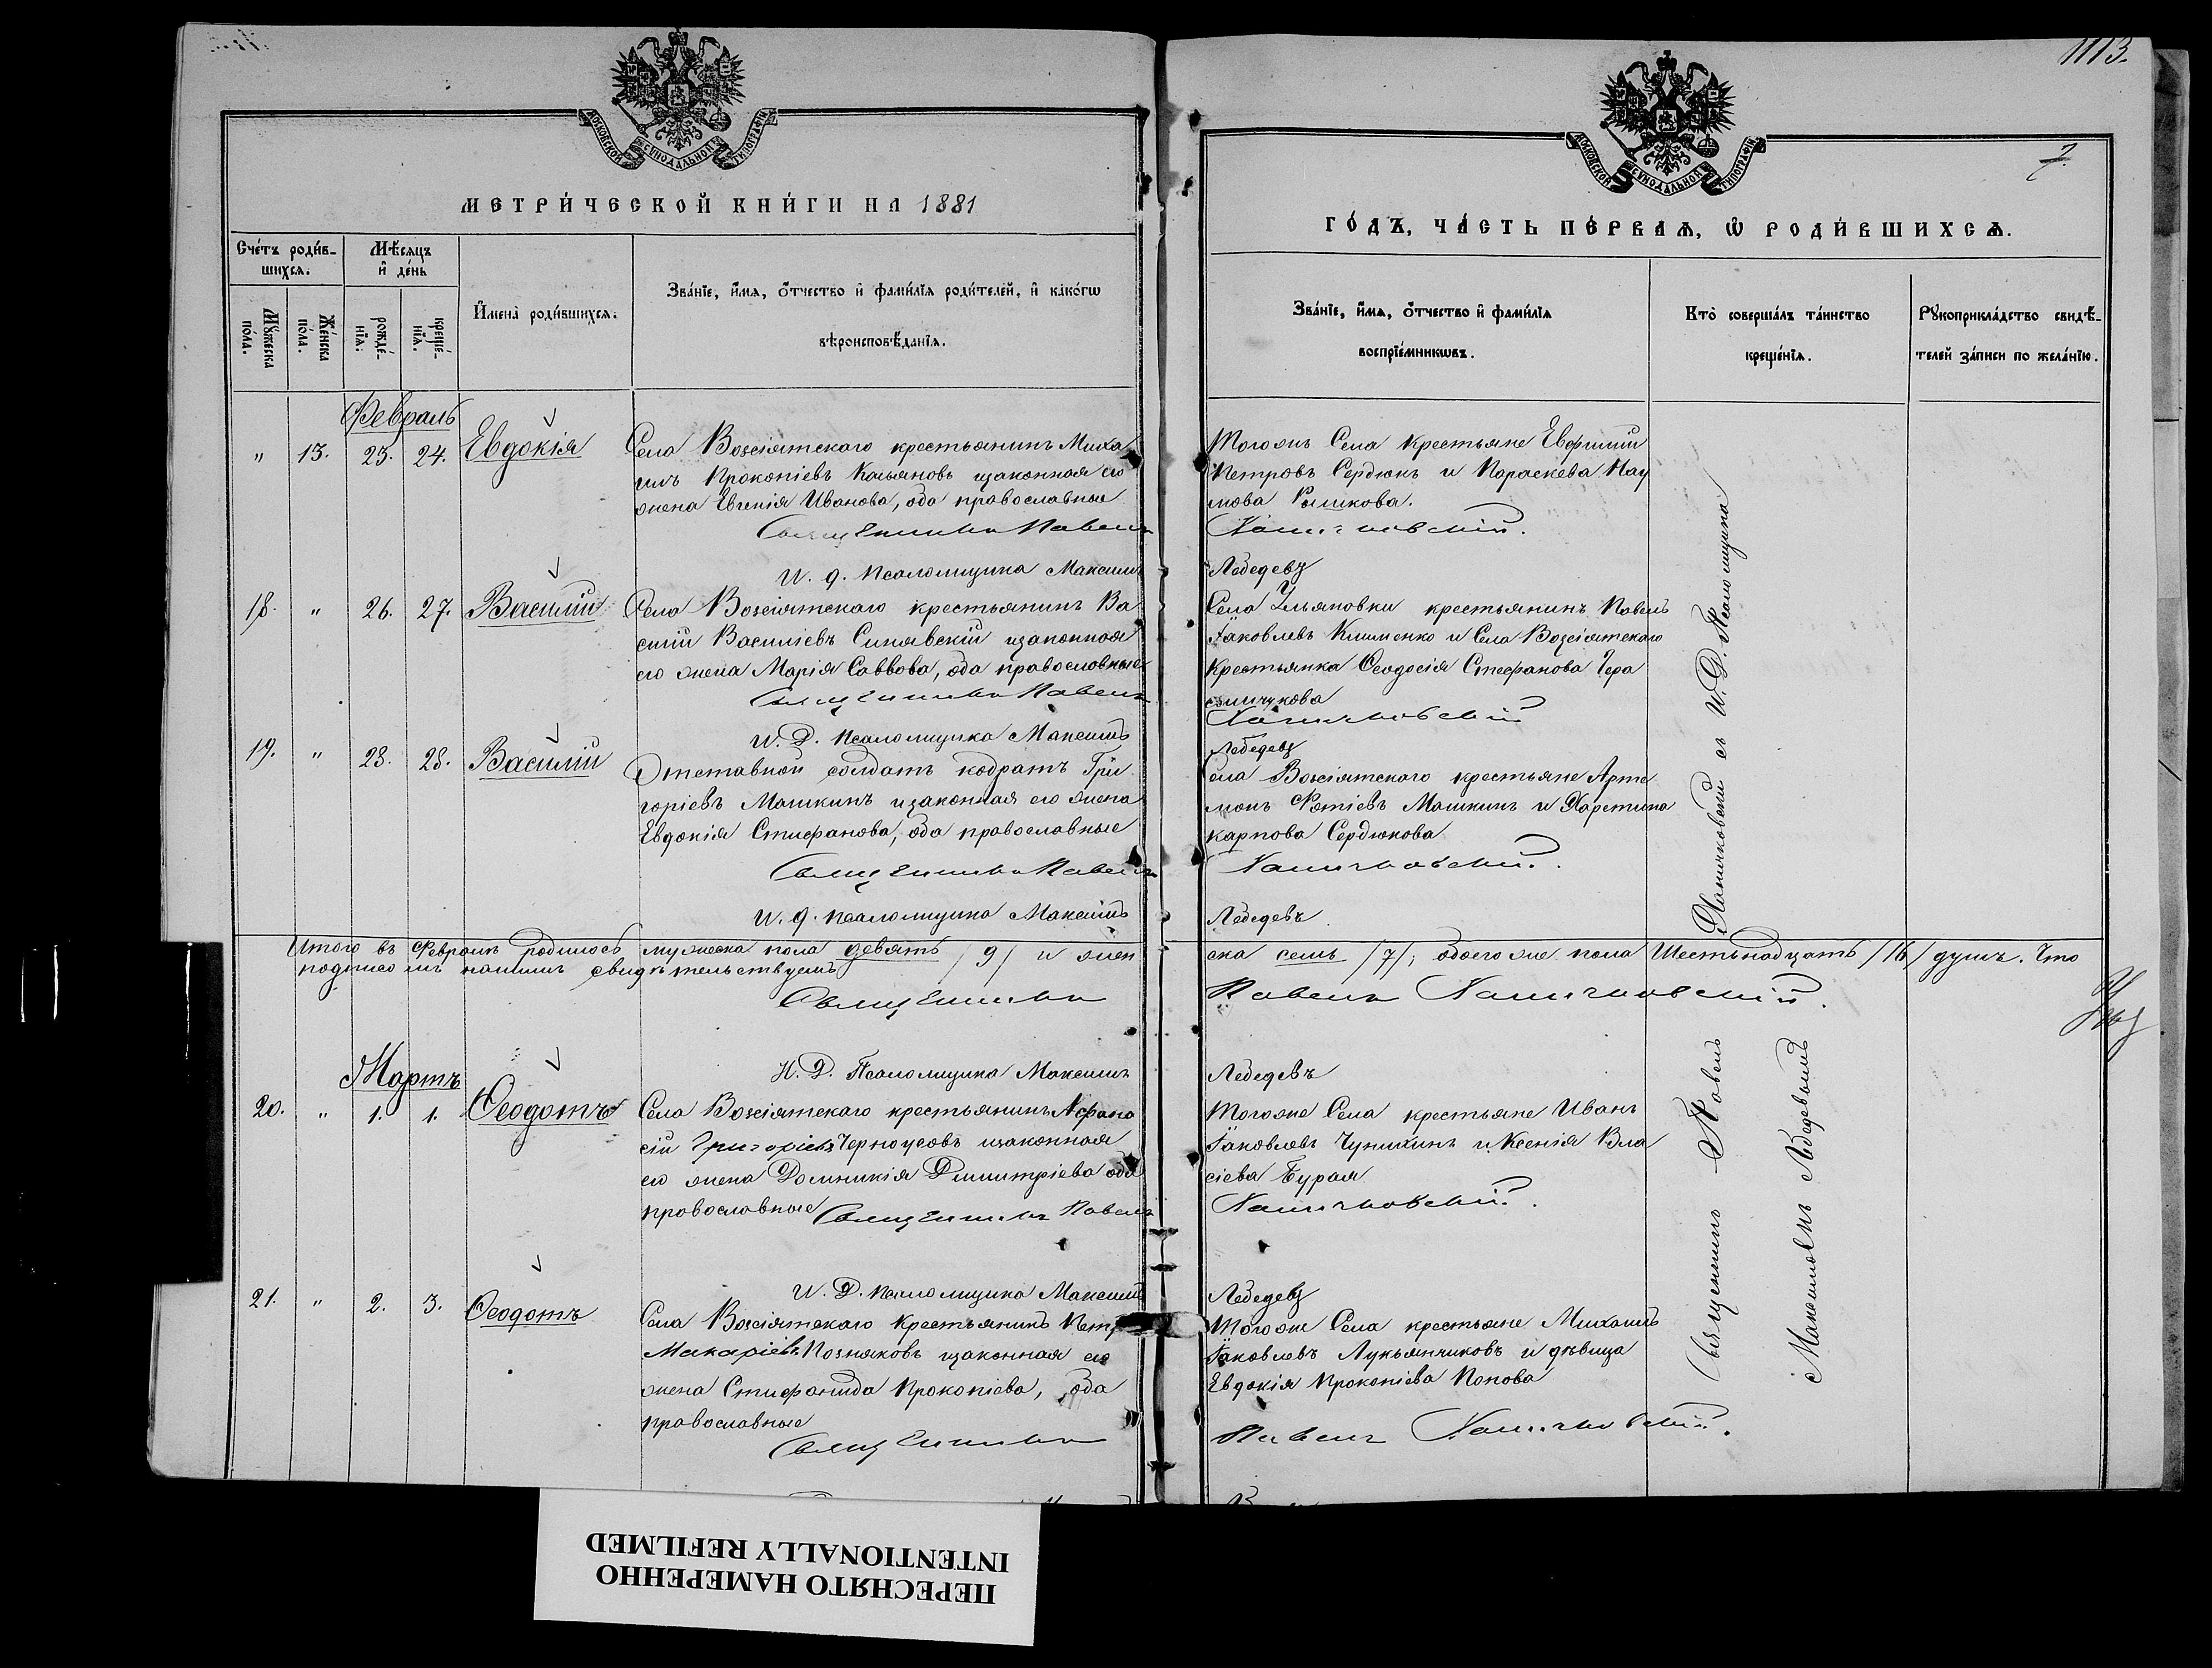 1113.
7.
МОСКОВСКОЙ СѴНОДАЛЬНОЙ ТИПОГРАФІИ
МОСКОВСКОЙ СѴНОДАЛЬНОЙ ТИПОГРАФІИ
МЕТРИ́ЧЕСКОЙ КНИ́ГИ НА 1881
ГО́ДЪ, ЧА́СТЬ ПЕ́РВАЯ, Ѿ РОДИ́ВШИХСЯ.
Сче́тъ роди́в-
шихся.
Мꙋ́жеска
по́ла.
Же́нска
по́ла.
Мѣ́сяцъ
и҆ де́нь
рожде́-
нїя.
креще́-
нїя.
И҆мена̀ роди́вшихся.
Зва́нїе, и҆́мя, ѻ҆́тчество и҆ фами́лїя роди́телей, и҆ како́гѡ
вѣроисповѣ́данїя.
Зва́нїе, и҆́мя, ѻ҆́тчество и҆ фами́лїя
воспрїе́мникѡвъ.
Кто̀ соверша́лъ та́инство
креще́нїя.
Рꙋкоприкла́дство свидѣ́-
телей за́писи по жела́нїю.
Февраль
" 13. 23. 24. Евдокія
Села Возсіятскаго крестьянинъ Миха
илъ Прокопіевъ Касьяновъ изаконная его
жена Евгенія Иванова, оба православные
Священникъ Павелъ
И. д. псаломщика Максимъ
Тогожъ Села крестьяне Евфимій
Петровъ Сердюкъ и Параскева Нау
мова
Лебедевъ
18. " 26. 27. Василій
Села Возсіятскаго крестьянинъ Ва
силій Василіевъ Синявскій изаконная
его жена Марія Саввова, оба православные
Священникъ Павелъ
И. Д. псаломщика Максимъ
Села Ульяновки крестьянинъ Павелъ
Іаковлевъ Клименко и Села Возсіятскаго
крестьянка Ѳеодосія Стефанова Гера
симчукова
Лебедевъ
19. " 28. 28. Василій
Отставной солдатъ кодратъ Гри
горіевъ Машкинъ изаконная его жена
Евдокія Стефанова, оба православные
Священникъ Павелъ
И. д. псаломщика Максимъ
Села Возсіятскаго крестьяне Арте
монъ Фотіевъ Машкинъ и Харетина
карпова Сердюкова
Лебедевъ
Итого въ Февралѣ родилось мужеска пола девять /9/ и жен
ска семь /7/, обоего же пола Шестьнадцать /16/ душъ. Что
подписомъ нашимъ свидѣтельствуемъ
Священникъ
Павелъ
И. Д. Псаломщика Максимъ
Лебедевъ
Мартъ
20. " 1. 1. Ѳеодотъ
Села Возсіятскаго крестьянинъ Афана
сій Григоріевъ Черноусовъ изаконная
его жена Домникія Димитріева оба
православные Священникъ Павелъ
И. Д. псаломщика Максимъ
Тогоже Села крестьяне Иванъ
Іаковлевъ Чунихинъ и Ксенія Вла
сіева Бурая
Лебедевъ
21. " 2. 3. Ѳеодотъ
Села Возсіятскаго крестьянинъ Петръ
Макаріевъ Позняковъ изаконная его
жена Стефанида Прокопіева, оба
православные
Священникъ
Тогоже Села крестьяне Михаилъ
Іаковлевъ Лукьянчиковъ и дѣвица
Евдокія Прокопіева Попова
Павелъ
Священникъ Павелъ
съ И. Д. Псаломщика
Максимомъ Лебедевымъ
ПЕРЕСНЯТО НАМЕРЕННО
INTENTIONALLY REFILMED